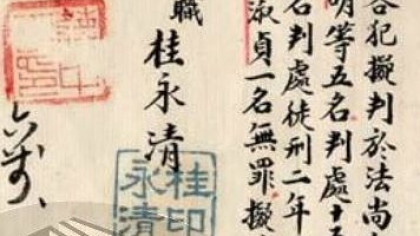 各犯擬判於法尚
明等五名判處十五
名判處徒刑二年
淑貞一名無罪擬
職
桂永清
桂印
永清